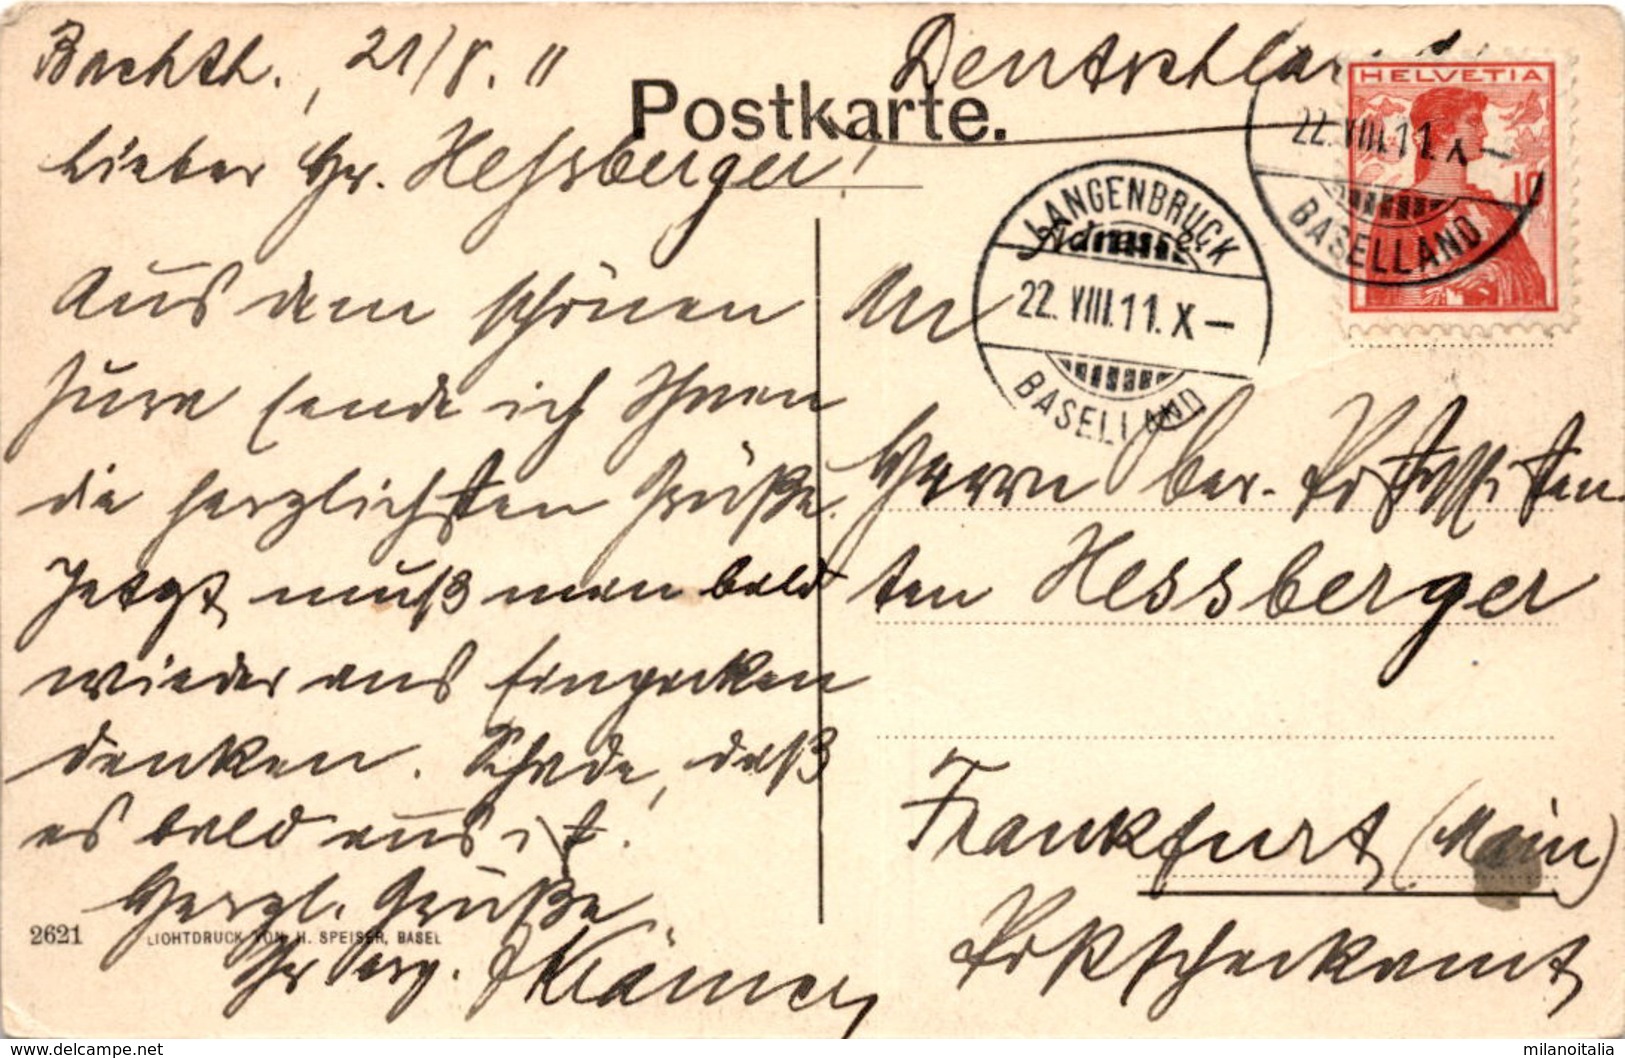 Bachth., 21/8. 11
Lieber Hr. Hessberger!
Aus dem schönen
Jura sende ich Ihnen
die herzlichsten Grüße.
Jetzt muß man bald
wieder ans Einpacken
denken. Schade, daß
es bald aus ist.
Herzl. Grüße
Ihr erg. Krämer
2621
LICHTDRUCK VON H. SPEISER, BASEL
Deutschland
Postkarte.
HELVETIA
10
22. VIII. 11. X–
BASELLAND
LANGENBRUCK
22. VIII. 11. X–
BASELLAND
An
Herrn Ober-Postassisten
ten Hessberger
Frankfurt (Main)
Postscheckamt
milanoitalia
https://www.delcampe.net